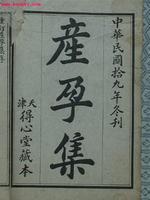 中華民國拾九年冬刊
產孕集
天津
得心堂藏本